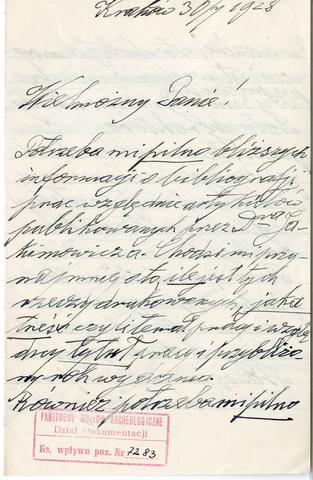 Kraków 30/V 1928
Wielmożny Panie!
Potrzeba mi pilno bliższych
informacji o bibliografji
prac względnie artykułów
publikowanych przez Dra Ja-
kimowicza. Chodzi mi przy-
najmniej o to, ile jest tych
rzeczy drukowanych, jaka
treść czy temat pracy i wzglę-
dny tytuł pracy i przybliżo-
ny rok wydania.
Również potrzeba mi pilno
PAŃSTWOWE MUZEUM ARCHEOLOGICZNE
Dział Dokumentacji
Ks. wpływu poz. Nr 7283